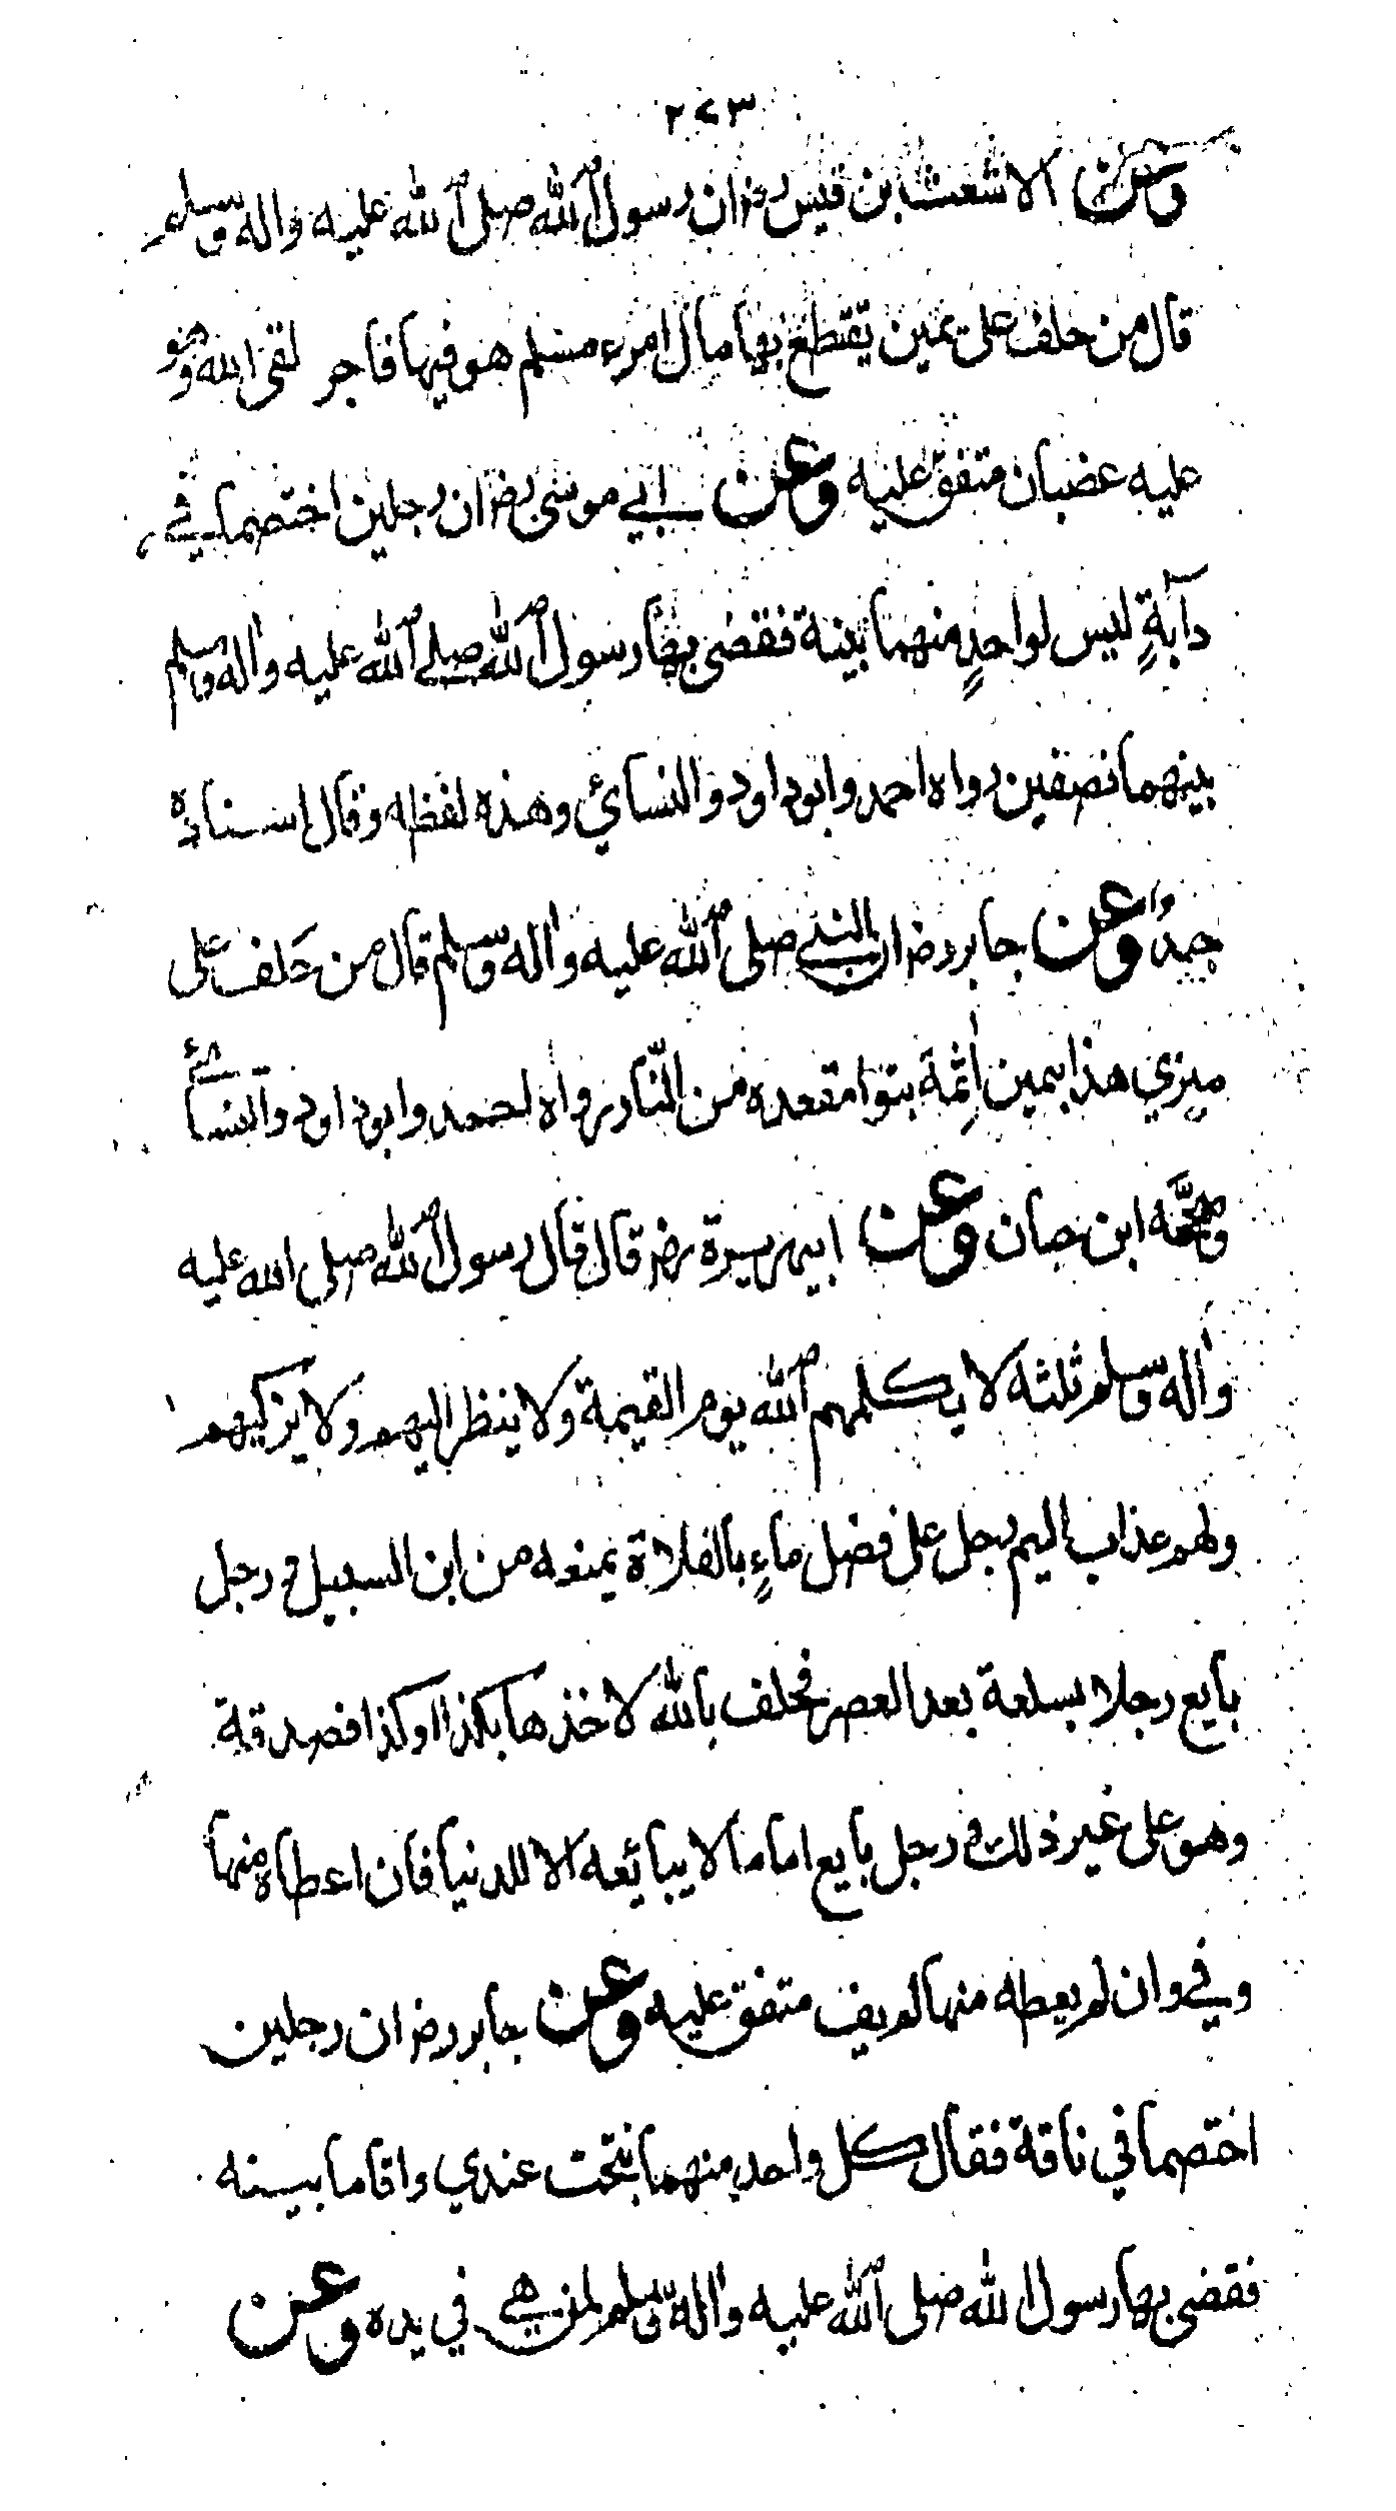 ٢٧٣
وعن الاشعث ابن قيس رض ان رسول الله صلى الله عليه واله وسلم
قال من حلف على يمين يقتطع بها مال امرء مسلم هو فيها فاجر لقى الله وهو
عليه غضبان متفق عليه وعن ابي موسى رض ان رجلين اختصما في
دآبةٍ ليس لواحدٍ منهما بينة فقضى بها رسول الله صلى الله عليه واله وسلم
بينهما نصفين رواه احمد وابو داود والنسائي وهذه لفظه وقال اسناده
جيدٌ وعن جابر رض ان النبي صلى الله عليه واله وسلم قال من حَلف على
منبري هذا بيمين اٰثمة تبوا مقعده من النّار رواه احمد وابو داود والنسائي
وصحَّحه ابن حبان وعن ابيهريرة رض قال قال رسول الله صلى الله عليه
واله وسلم ثلثه لا يكلمهم الله يوم القيمة ولا ينظر اليهم ولا يزكيهم
ولهم عذاب اليم رجل على فضل ماءٍ بالفلاة يمنعه من ابن السبيل و رجل
بايع رجلا بسلعة بعد العصر فحلف بالله لاخذها بكذا اوكذا فصدقة
وهو على غير ذلك و رجل بايع اماما لا يبائعه الا للدنيا فان اعطاه منها
وفي وان لم يعطه منها لم يف متفق عليه وعن جابر رض ان رجلين
اختصما في ناقة فقال كل واحد منهما نتجت عندي واقاما بينه
فقضى بها رسول الله صلى الله عليه واله وسلم لمن هي في يده وعن